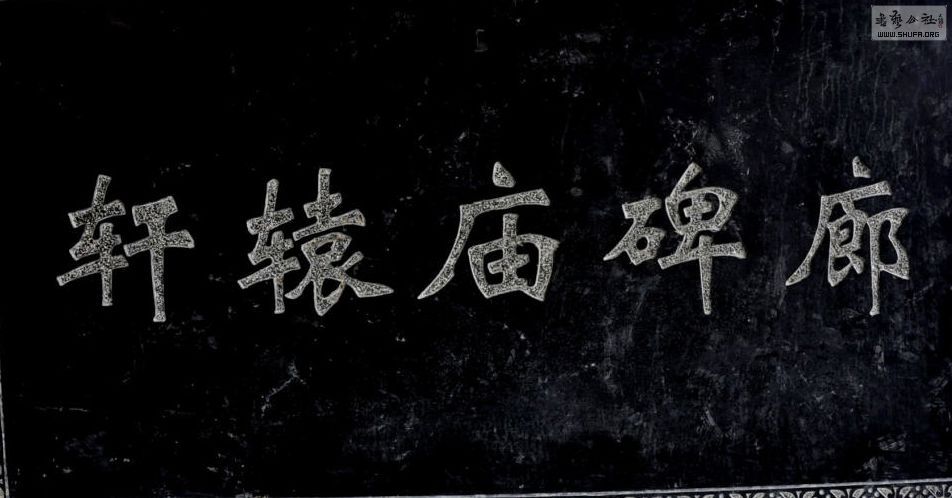 书艺公社
WWW.SHUFA.ORG
轩辕庙碑廊